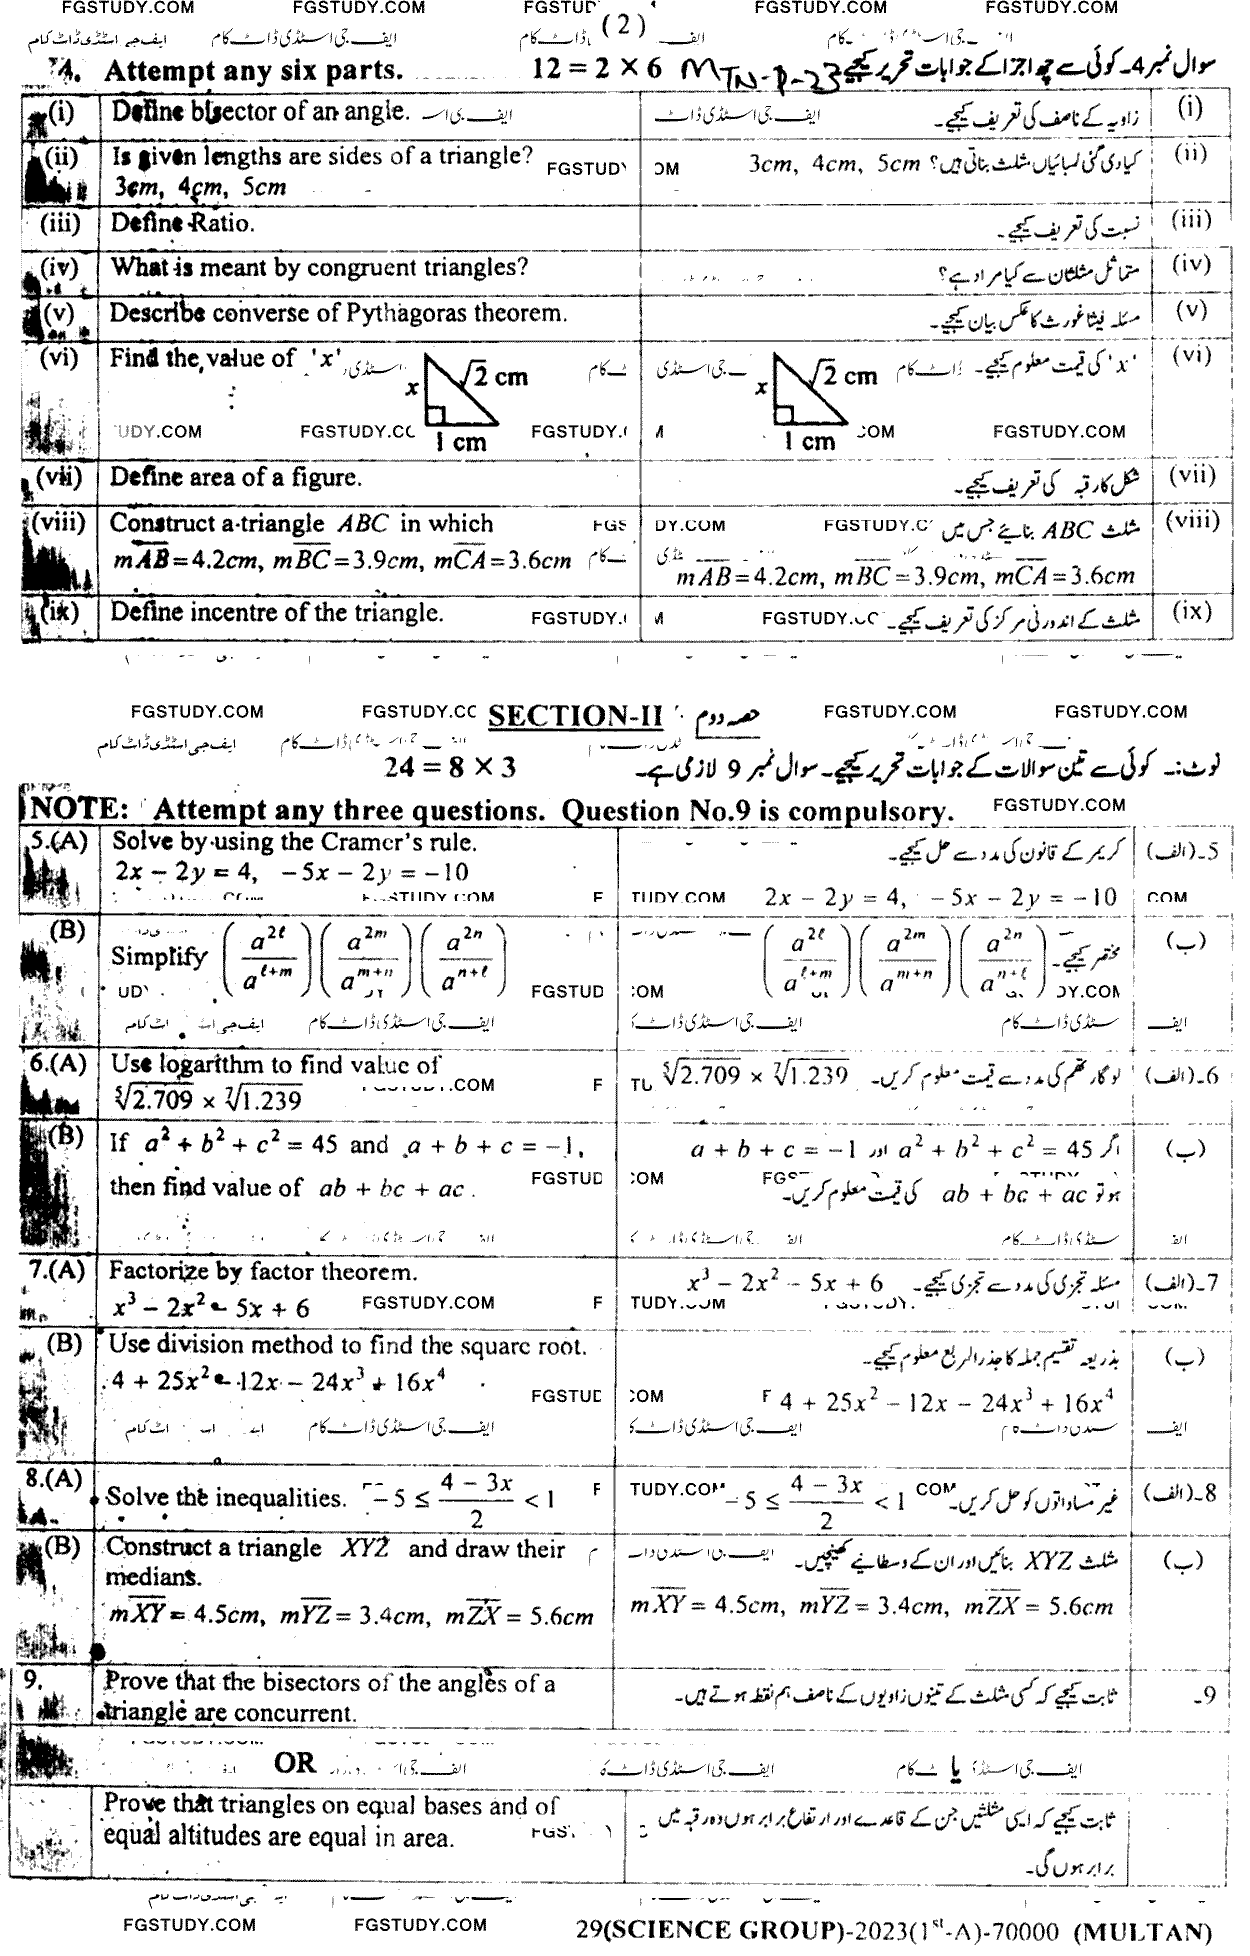 FGSTUDY.COM FGSTUDY.COM FGSTUDY.COM FGSTUDY.COM
(2)
ایف جی اسٹڈی ڈاٹ کام
4. Attempt any six parts. 12 = 2 × 6 MTN-P-23 سوال نمبر 4۔ کوئی سے چھ اجزا کے جوابات تحریر کیجیے
(i) Define bisector of an angle. زاویہ کے ناصف کی تعریف کیجیے۔ (i)
(ii) Is given lengths are sides of a triangle? 3cm, 4cm, 5cm کیا دی گئی لمبائیاں مثلث بناتی ہیں؟ (ii)
3cm, 4cm, 5cm
(iii) Define Ratio. نسبت کی تعریف کیجیے۔ (iii)
(iv) What is meant by congruent triangles? متماثل مثلثان سے کیا مراد ہے؟ (iv)
(v) Describe converse of Pythagoras theorem. مسئلہ فیثاغورث کا عکس بیان کیجیے۔ (v)
(vi) Find the value of 'x' 'x' کی قیمت معلوم کیجیے۔ (vi)
x √2 cm x √2 cm
1 cm 1 cm
FGSTUDY.COM
(vii) Define area of a figure. شکل کا رقبہ کی تعریف کیجیے۔ (vii)
(viii) Construct a triangle ABC in which مثلث ABC بنائیے جس میں (viii)
m\overline{AB}=4.2cm, m\overline{BC}=3.9cm, m\overline{CA}=3.6cm m\overline{AB}=4.2cm, m\overline{BC}=3.9cm, m\overline{CA}=3.6cm
(ix) Define incentre of the triangle. مثلث کے اندورنی مرکز کی تعریف کیجیے۔ (ix)
FGSTUDY.COM SECTION-II حصہ دوم FGSTUDY.COM FGSTUDY.COM
24 = 8 × 3 نوٹ:۔ کوئی سے تین سوالات کے جوابات تحریر کیجیے۔ سوال نمبر 9 لازمی ہے۔
NOTE: Attempt any three questions. Question No.9 is compulsory. FGSTUDY.COM
5.(A) Solve by using the Cramer's rule. کریمر کے قانون کی مدد سے حل کیجیے۔ 5۔(الف)
2x − 2y = 4, −5x − 2y = −10 2x − 2y = 4, −5x − 2y = −10
(B) Simplify (a^{2ℓ}/a^{ℓ+m})(a^{2m}/a^{m+n})(a^{2n}/a^{n+ℓ}) (a^{2ℓ}/a^{ℓ+m})(a^{2m}/a^{m+n})(a^{2n}/a^{n+ℓ}) مختصر کیجیے۔ (ب)
ایف جی اسٹڈی ڈاٹ کام
6.(A) Use logarithm to find value of ⁵√2.709 × ⁷√1.239 لوگارتھم کی مدد سے قیمت معلوم کریں۔ 6۔(الف)
⁵√2.709 × ⁷√1.239
(B) If a² + b² + c² = 45 and a + b + c = −1, اگر a² + b² + c² = 45 اور a + b + c = −1 (ب)
then find value of ab + bc + ac. ہو تو ab + bc + ac کی قیمت معلوم کریں۔
7.(A) Factorize by factor theorem. x³ − 2x² − 5x + 6 مسئلہ تجزی کی مدد سے تجزی کیجیے۔ 7۔(الف)
x³ − 2x² − 5x + 6 FGSTUDY.COM
(B) Use division method to find the square root. بذریعہ تقسیم جملہ کا جذرالمربع معلوم کیجیے۔ (ب)
4 + 25x² − 12x − 24x³ + 16x⁴ 4 + 25x² − 12x − 24x³ + 16x⁴
ایف جی اسٹڈی ڈاٹ کام
8.(A) Solve the inequalities. −5 ≤ (4 − 3x)/2 < 1 −5 ≤ (4 − 3x)/2 < 1 غیر مساواتوں کو حل کریں۔ 8۔(الف)
(B) Construct a triangle XYZ and draw their مثلث XYZ بنائیں اور ان کے وسطانیے کھینچیں۔ (ب)
medians.
m\overline{XY} = 4.5cm, m\overline{YZ} = 3.4cm, m\overline{ZX} = 5.6cm m\overline{XY} = 4.5cm, m\overline{YZ} = 3.4cm, m\overline{ZX} = 5.6cm
9. Prove that the bisectors of the angles of a ثابت کیجیے کہ کسی مثلث کے تینوں زاویوں کے ناصف ہم نقطہ ہوتے ہیں۔ 9۔
triangle are concurrent.
OR یا
Prove that triangles on equal bases and of ثابت کیجیے کہ ایسی مثلثیں جن کے قاعدے اور ارتفاع برابر ہوں وہ رقبہ میں
equal altitudes are equal in area. برابر ہوں گی۔
FGSTUDY.COM FGSTUDY.COM 29(SCIENCE GROUP)-2023(1st-A)-70000 (MULTAN)